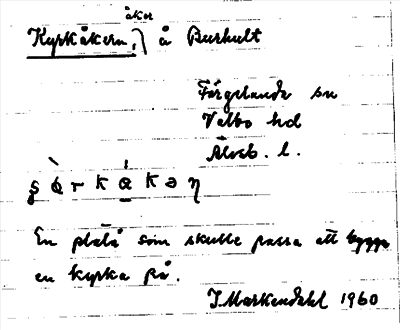 åker
Kyrkåkern, å Burhult
Färgelanda sn
Valbo hd
Älvsb. l.
En platå som skulle passa att bygga
en kyrka på.
J. Markendahl 1960